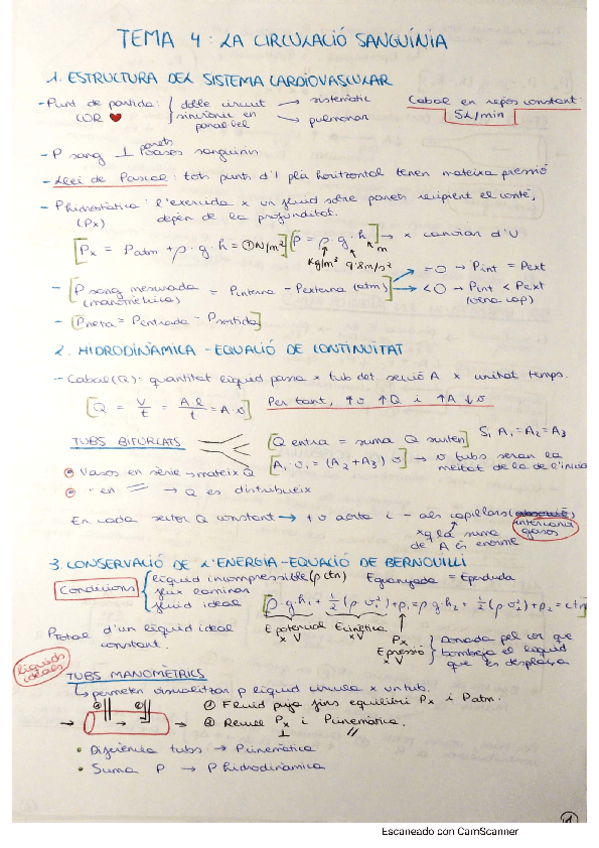 TEMA 4: LA CIRCULACIÓ SANGUÍNIA
1. ESTRUCTURA DEL SISTEMA CARDIOVASCULAR
- Punt de partida: { doble circuit → sistemàtic
COR ❤ sincrònic en paral·lel → pulmonar
Cabal en repòs constant:
5L/min
- P sang ⊥ parets vasos sanguinis
- Llei de Pascal: tots punts d'1 pla horitzontal tenen mateixa pressió
- P hidrostàtica: l'exercida x un fluid sobre parets recipient el conté,
(Px) depèn de la profunditat.
[Px = Patm + ρ · g · h = ① N/m²] [P = ρ · g · h] → x canvian d'U
kg/m³ 9'8m/s² m
- [P sang mesurada = Pinterna - Pexterna (atm)] → = 0 → Pint = Pext
(manomètrica) → < 0 → Pint < Pext
(vena cap)
- [Pneta = Pentrada - Psortida]
2. HIDRODINÀMICA - EQUACIÓ DE CONTINUÏTAT
- Cabal (Q): quantitat líquid passa x tub det secció A x unitat temps.
[Q = V/t = A·l/t = A · v] Per tant, ↑v ↑Q i ↑A ↓v
TUBS BIFURCATS [Q entra = suma Q surten] Si A₁ = A₂ = A₃
[A₁ · v₁ = (A₂ + A₃) v] → v tubs seran la
meitat de la de l'inici
Vasos en sèrie → mateix Q
" en // → Q es distribueix
En cada sector Q constant → + v aorta i - als capil·lars (intercanvi gasos)
xq la suma
de A és enorme
3. CONSERVACIÓ DE L'ENERGIA - EQUACIÓ DE BERNOUILLI
Condicions { líquid incompressible (ρ ctn) Eguanyada = Eperduda
flux laminar
fluid ideal [ρ · g · h₁ + ½ (ρ · v₁²) + p₁ = ρ · g · h₂ + ½ (ρ v₂²) + p₂ = ctn]
Ptotal d'un líquid ideal E potencial Ecinètica Px
constant. x V x V Epressió
x V
{ Donada pel cor que
bombeja el líquid
que es desplaça
líquids ideals
TUBS MANOMÈTRICS
↳ permeten visualitzar p líquid circula x un tub.
① Fluid puja fins equilibri Px i Patm.
② Recull Px i Pcinemàtica.
⊥ //
• Diferència tubs → Pcinemàtica
• Suma P → P hidrodinàmica
1
Escaneado con CamScanner